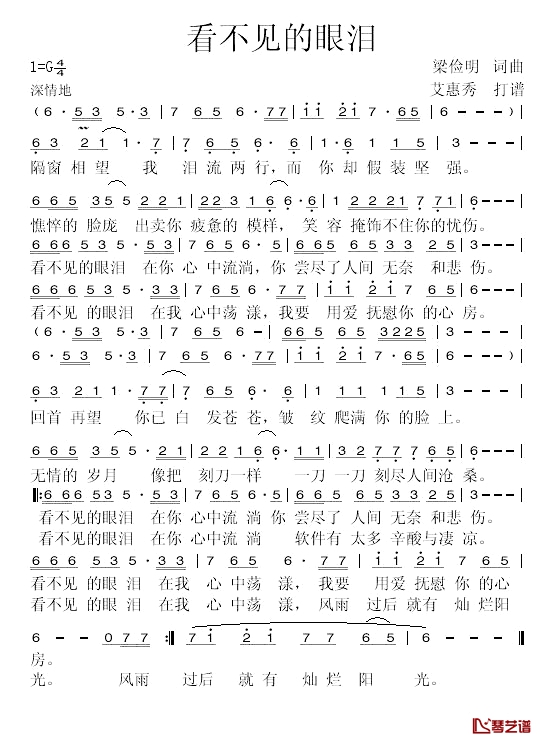 看不见的眼泪
1=G4/4
梁俭明 词曲
深情地
艾惠秀 打谱
(6·53 5·3|7 65 6·77|ii 2i 7·65|6---)|
63 21 1·7|7 65 6·6|1·6 1 15|3---|
隔窗相望 我 泪流两行,而 你却假装坚强。
665 355 221|223 166·6·|222217 71|6---|
憔悴的脸庞 出卖你疲惫的模样, 笑容掩饰不住你的忧伤。
666535·53|765 6·6|665653325|3---|
看不见的眼泪 在你心中流淌,你尝尽了人间无奈 和悲伤。
666535·53|7656·77|ii 2i 765|6---|
看不见的眼泪 在我心中荡漾,我要 用爱抚慰你的心房。
(6·53 5·3|7656·6|665 65 3225|3---|
6·53 5·3|765 6·77|ii 2i7·65|6---)|
63 211·77|7656·6|111 15|3---|
回首再望 你已白发苍苍,皱纹爬满你的脸上。
665 355·5|2216 66·|3277765|6---|
无情的岁月 像把刻刀一样 一刀一刀刻尽人间沧桑。
‖:666535·53|7656·6|665653325|3---|
看不见的眼泪 在你心中流淌你尝尽了人间无奈和悲伤。
看不见的眼泪 在你心中流淌 软件有太多辛酸与凄凉。
666535·53|765 6·77|ii 2i 765|
看不见的眼泪 在我心中荡漾,我要 用爱抚慰你的心
看不见的眼泪 在我心中荡漾,风雨 过后就有灿烂阳
6--077:‖7i 2i 77 65|6---‖
房。
光。 风雨 过后就有灿烂阳 光。
琴艺谱